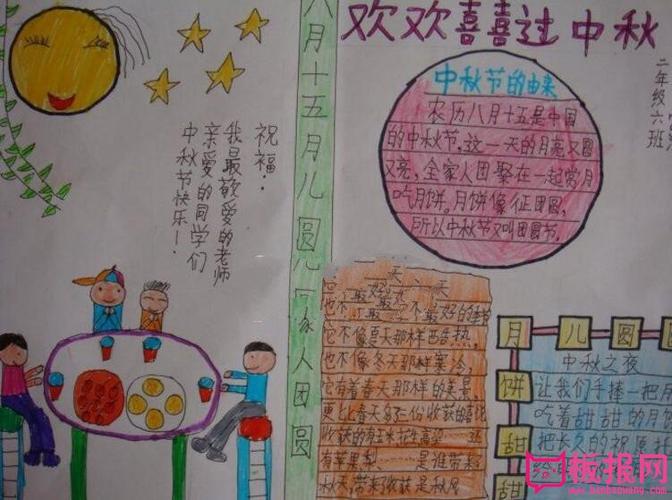 欢欢喜喜过中秋
二年级六班
八月十五月儿圆
家人团圆
祝福：
我最敬爱的老师
亲爱的同学们
中秋节快乐！
中秋节的由来
农历八月十五是中国
的中秋节。这一天的月亮又圆
又亮，全家人团聚在一起赏月
吃月饼。月饼像征团圆，
所以中秋节又叫团圆节。
它不像夏天那样
也不像冬天那样寒冷，
它有着春天那样的美景
更比春天多了一份收获的喜
有苹果梨、
秋天带来收获是秋风
月儿圆圆
饼甜甜
中秋之夜
让我们手捧一把月
吃着甜甜的月
把长久的祝愿
板报网